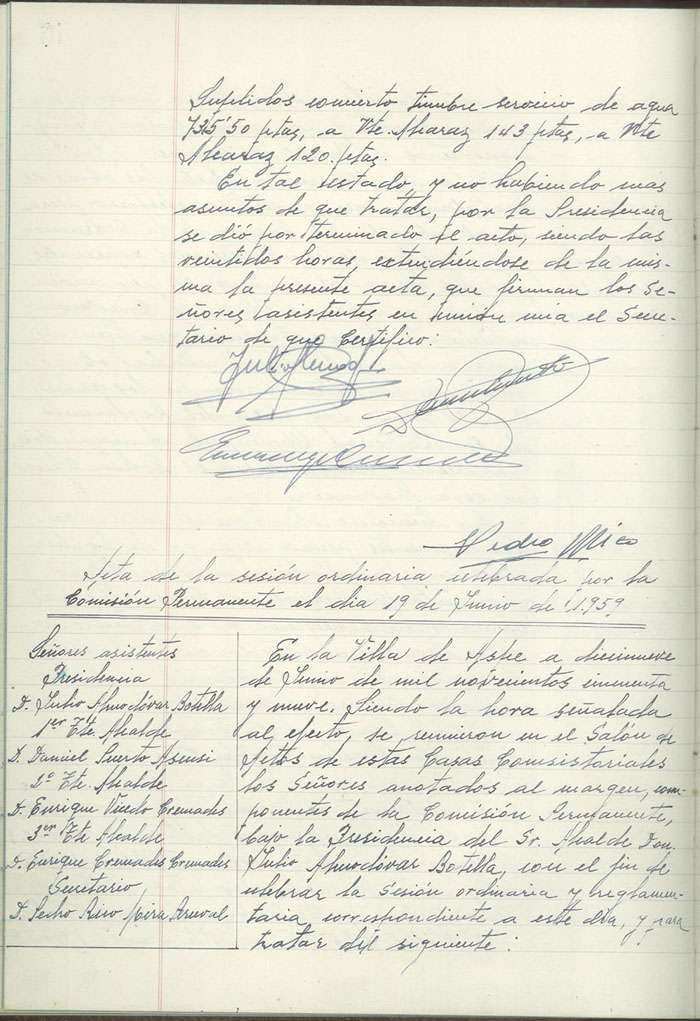 Suplidos concierto timbre servicio de agua
735'50 ptas, a Vte. Alcaraz 143 ptas, a Vte
Alcaraz 120. ptas.
En tal estado, y no habiendo más
asuntos de que tratar, por la Presidencia
se dió por terminado el acto, siendo las
veintidos horas, extendiéndose de la mis-
ma la presente acta, que firman los Se-
ñores asistentes en unión mía el Secre-
tario de que Certifico:
Pedro Rico
Acta de la sesión ordinaria celebrada por la
Comisión Permanente el dia 19 de Junio de 1.959
Señores asistentes
Presidencia
D. Julio Almodóvar Botella
1er Tte. Alcalde
D. Daniel Puerto Asensi
2º Tte. Alcalde
D. Enrique Vicedo Cremades
3er Tte Alcalde
D. Enrique Cremades Cremades
Secretario
D. Pedro Rico Mira
En la Villa de Aspe a diecinueve
de Junio de mil novecientos cincuenta
y nueve. Siendo la hora señalada
al efecto, se reunieron en el Salón de
Actos de estas Casas Consistoriales
los Señores anotados al margen, com-
ponentes de la Comisión Permanente,
bajo la Presidencia del Sr. Alcalde Don.
Julio Almodóvar Botella, con el fin de
celebrar la sesión ordinaria y reglamen-
taria, correspondiente a este día, y para
tratar del siguiente: